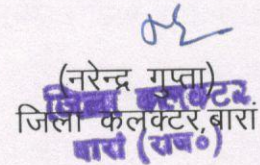 (नरेन्द्र गुप्ता)
जिला कलक्टर
जिला कलक्टर, बारां
बारां (राज०)